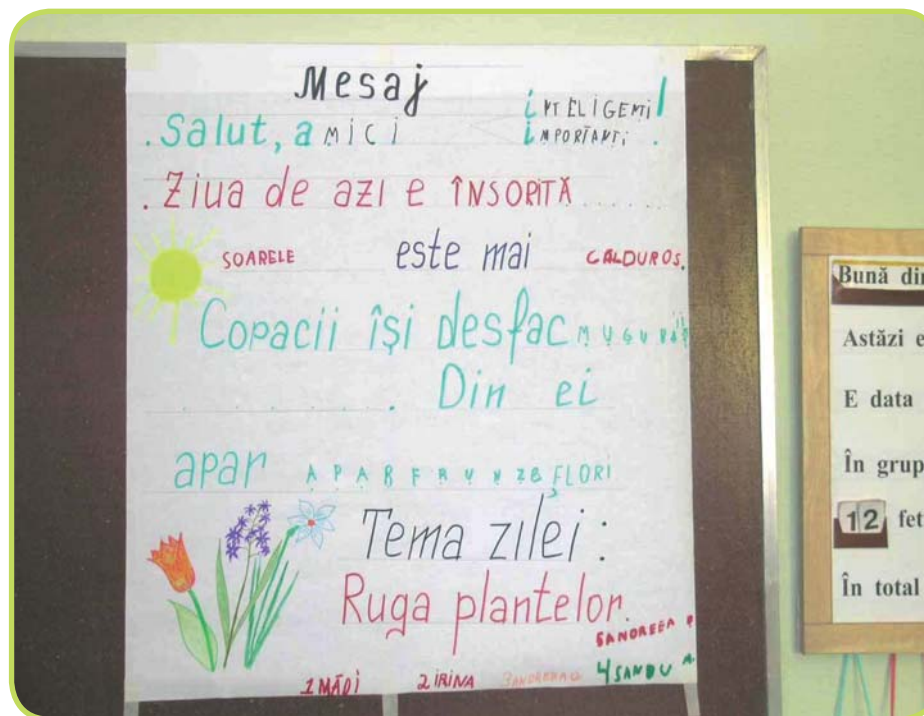 Mesaj
.Salut, amici
INTELIGENȚI!
IMPORTANȚI.
.Ziua de azi e ÎNSORITĂ......
SOARELE este mai CALDUROS.
Copacii își desfac MUGURAȘII
....... Din ei
apar APAR FRUNZE FLORI
Tema zilei:
Ruga plantelor.
1 MĂDI 2 IRINA 4 SANDU A.
Bună
Astăzi e
E data
În
12
În total